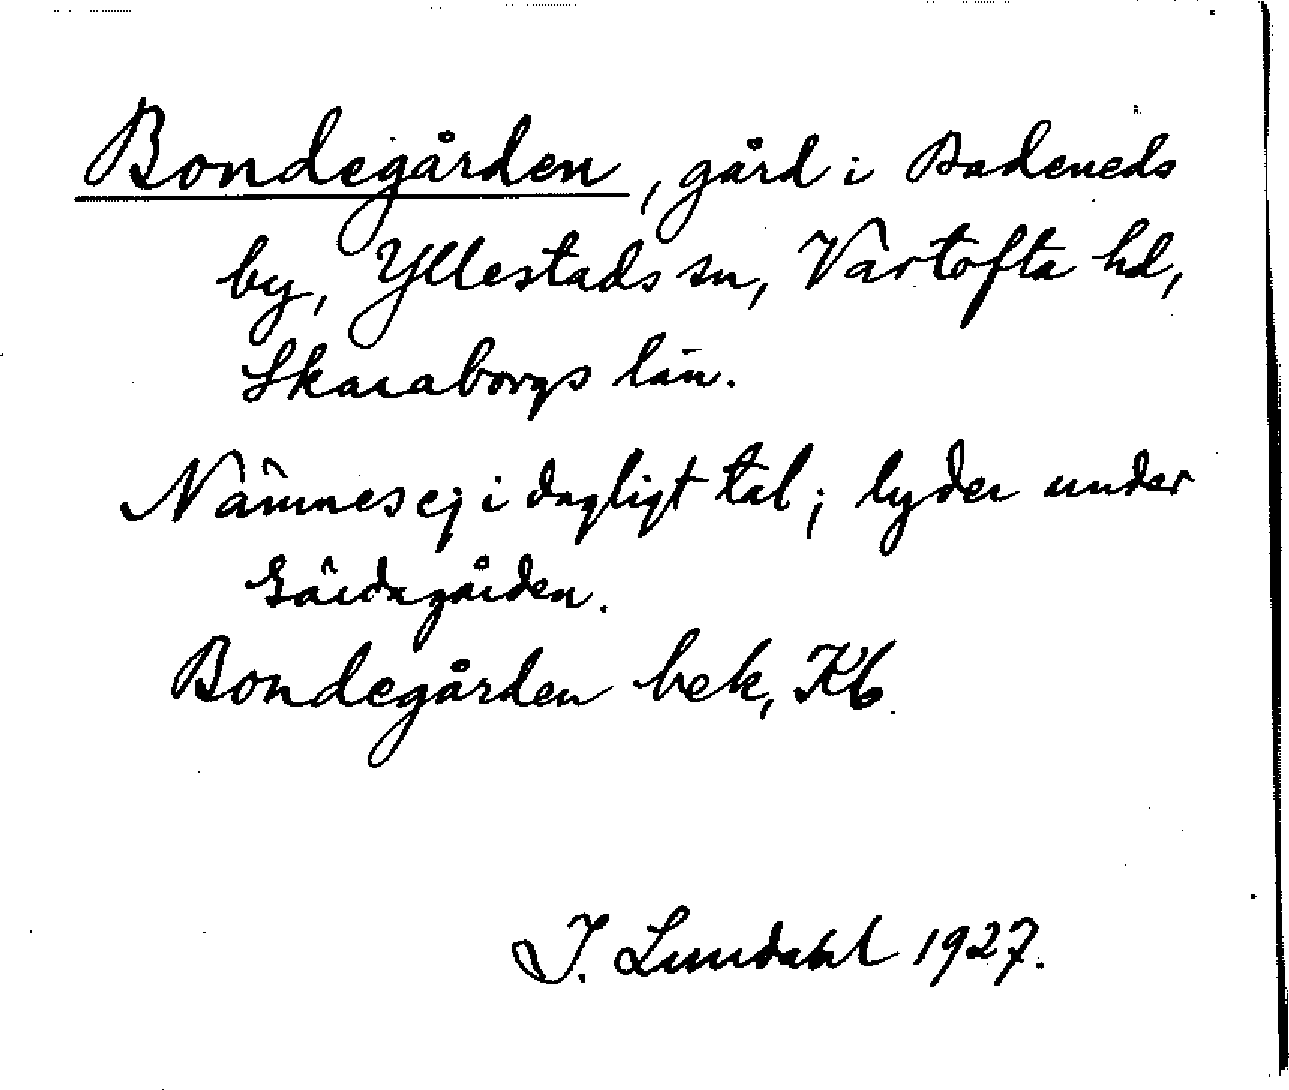 Bondegården, gård i Badeneds
by, Yllestads sn, Vartofta hd,
Skaraborgs län.
Nämnes ej i dagligt tal; lyder under
Gärdagården.
Bondegården bek, Kb.
I. Lundahl 1927.